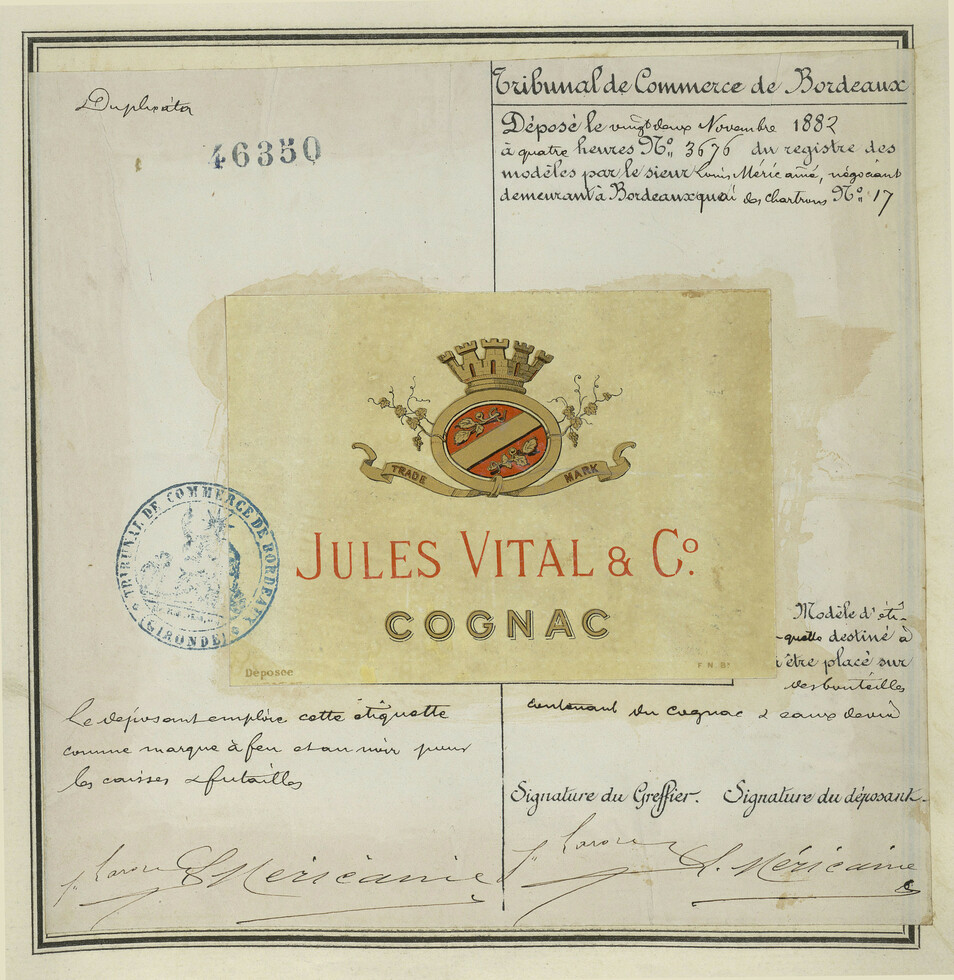 Duplicata
46350
Tribunal de Commerce de Bordeaux
Déposé le vingt deux Novembre 1882
à quatre heures Nº 3676 du registre des
modèles par le sieur Louis Méricamé, négociant
demeurant à Bordeaux quai des Chartrons Nº 17
TRADE MARK
JULES VITAL & Cº.
COGNAC
Déposée
F. N. Bx
TRIBUNAL DE COMMERCE DE BORDEAUX
(GIRONDE)
Modèle d'éti-
-quette destiné à
être placé sur
des bouteilles
contenant du cognac & eaux de vie
Le déposant emploie cette étiquette
comme marque à feu et au noir pour
les caisses & futailles
Signature du Greffier. Signature du déposant.
L. Méricamé
L. Méricamé